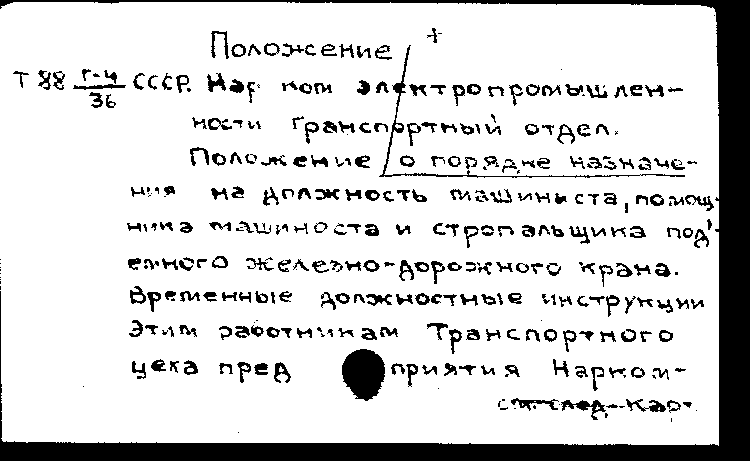 Положение +
Т 88 г-4/36 СССР. Нар ком электропромышлен-
ности Транспортный отдел.
Положение о порядке назначе-
ния на должность машиниста, помощ-
ника машиноста и стропальщика под'-
емного железно-дорожного крана.
Временные должностные инструкции
этим работникам Транспортного
цека пред приятия Нарком-
см. след. кар.